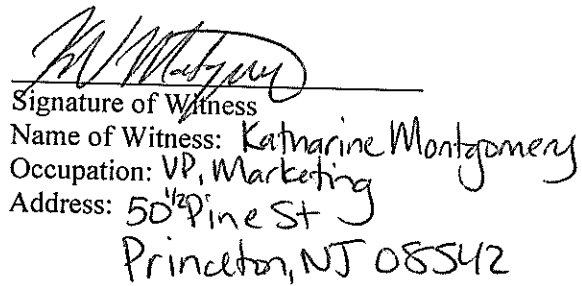 Signature of Witness
Name of Witness: Katharine Montgomery
Occupation: VP, Marketing
Address: 50 1/2 Pine St
Princeton, NJ 08542